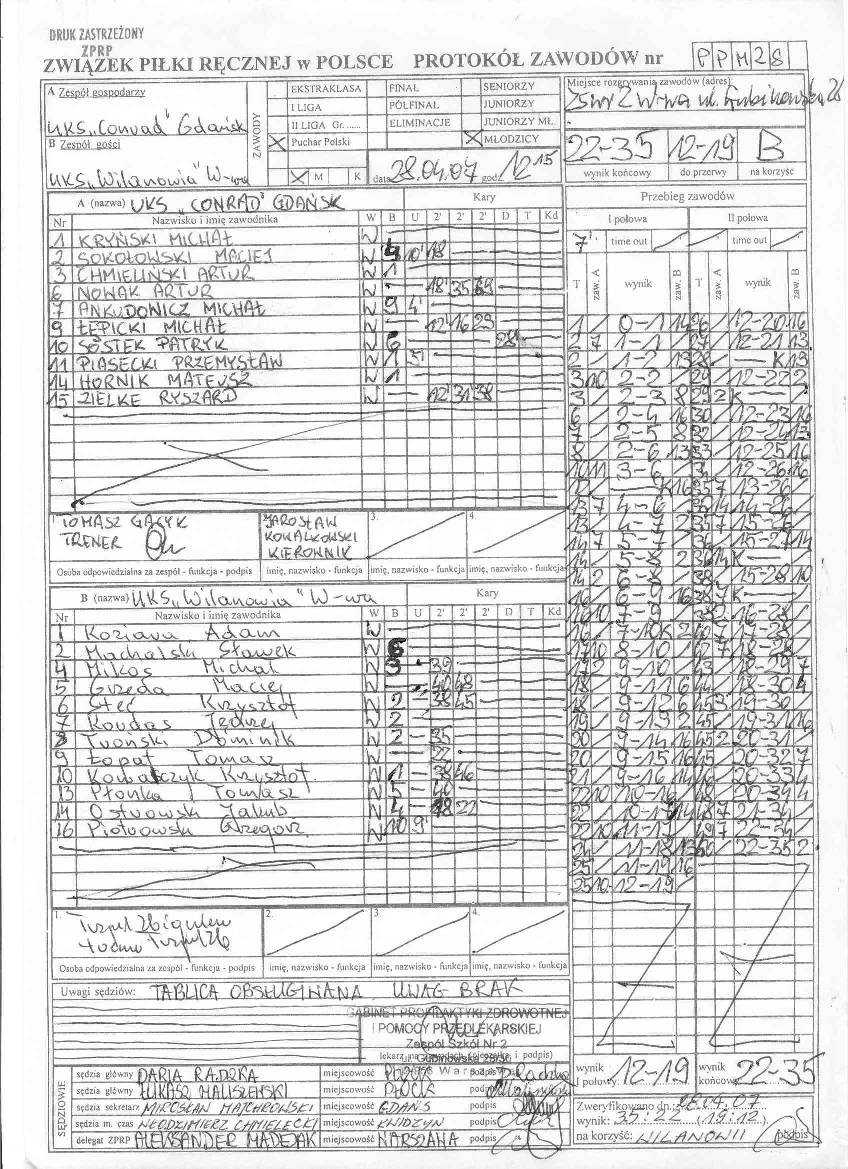 DRUK ZASTRZEŻONY
ZPRP
ZWIĄZEK PIŁKI RĘCZNEJ w POLSCE PROTOKÓŁ ZAWODÓW nr PPM28
A Zespół gospodarzy
UKS „Conrad" Gdańsk
B Zespół gości
UKS „Wilanowia" W-wa
ZAWODY
EKSTRAKLASA FINAŁ SENIORZY
I LIGA PÓŁFINAŁ JUNIORZY
II LIGA Gr....... ELIMINACJE JUNIORZY MŁ.
Puchar Polski MŁODZICY
M K data 28.04.07 godz. 12 15
Miejsce rozgrywania zawodów (adres)
22-35 12-19 B
wynik końcowy do przerwy na korzyść
A (nazwa) UKS „CONRAD" GDAŃSK Kary
Nr Nazwisko i imię zawodnika W B U 2' 2' 2' D T Kd
1 KRYŃSKI MICHAŁ W
2 SOKOŁOWSKI MACIEJ W 4 10' 18
3 CHMIELIŃSKI ARTUR W 1
6 NOWAK ARTUR W 18' 35
7 ANKUDOWICZ MICHAŁ W 9 4'
9 ŁEPICKI MICHAŁ W 12' 16 29
10 SOSTEK PATRYK W 6 28'
11 PIASECKI PRZEMYSŁAW W 1 3'
14 HORNIK MATEUSZ W 1
15 ZIELKE RYSZARD W 12' 31 38
TOMASZ GACYK
TRENER
JAROSŁAW
KOWALKOWSKI
KIEROWNIK
3. 4.
Osoba odpowiedzialna za zespół - funkcja - podpis imię, nazwisko - funkcja imię, nazwisko - funkcja imię, nazwisko - funkcja
B (nazwa) UKS „Wilanowia" W-wa Kary
Nr Nazwisko i imię zawodnika W B U 2' 2' 2' D T Kd
1 Koziava Adam W
2 Machalski Sławek W 6
4 Mikos Michał W 3 39
5 Grzęda Maciej W 40 48
6 Steć Krzysztof W 2 38 45
7 Koudas W 2
8 Dominik W 2 35
9 Łopat Tomasz W 22
10 Kowalczyk Krzysztof W 1 38 46
13 Płonka Tomasz W 5 40
14 Ostrowski Jakub W 4 18 22
16 Piotrowski Grzegorz W 10 9'
1. 2. 3. 4.
Osoba odpowiedzialna za zespół - funkcja - podpis imię, nazwisko - funkcja imię, nazwisko - funkcja imię, nazwisko - funkcja
Przebieg zawodów
I połowa II połowa
7' time out time out
T zaw. A wynik zaw. B T zaw. A wynik zaw. B
1 0-1 14 26 12-20 16
2 7 1-1 27 12-21 13
2 1-2 13 28 K 13
3 10 2-2 29 12-22 2
3 2-3 8 29 2 K
6 2-4 16 30 12-23 16
7 2-5 8 32 12-24 13
8 2-6 13 33 12-25 16
10 11 3-6 34 12-26 16
12 K 16 35 7 13-26
13 7 4-6 14-26
13 4-7 2 35 7 15-26
14 7 5-7 36 15-27 14
14 5-8 2 36 14 K
14 2 6-8 38 15-28 10
16 6-9 16 38 7 K
16 10 7-9 16-28
16 7-10 K 2 40 7 17-28
17 10 8-10 18-28
17 2 9-10 18-29 7
18 9-11 6 44 18-30 4
18 9-12 6 45 3 19-30
19 9-13 2 45 19-31 16
20 9-14 16 45 2 20-31
20 9-15 16 45 20-32 7
21 9-16 14 46 20-33 4
22 10 10-16 48 20-34 4
22 10-17 14 48 7 21-34
22 10 11-17 49 7 22-34
24 11-18 13 50 22-35 2
25 11-19 16
25 10 12-19
Uwagi sędziów: TABLICA OBSŁUGIWANA UWAG BRAK
GABINET PROFILAKTYKI ZDROWOTNEJ
I POMOCY PRZEDLEKARSKIEJ
Zespół Szkół Nr 2
SĘDZIOWIE
sędzia główny DARIA RADZKA miejscowość PŁOCK podpis
sędzia główny ŁUKASZ MALISZEWSKI miejscowość PŁOCK podpis
sędzia sekretarz MIROSŁAW MAJCHROWSKI miejscowość GDAŃS podpis
sędzia m. czas WŁODZIMIERZ CHMIELECKI miejscowość KWIDZYN podpis
delegat ZPRP ALEKSANDER MADEJAK miejscowość WARSZAWA podpis
wynik I połowy 12-19 wynik końcowy 22-35
Zweryfikowano dn. 28.04.07
wynik: 35:22 (19:12)
na korzyść: WILANOWII podpis